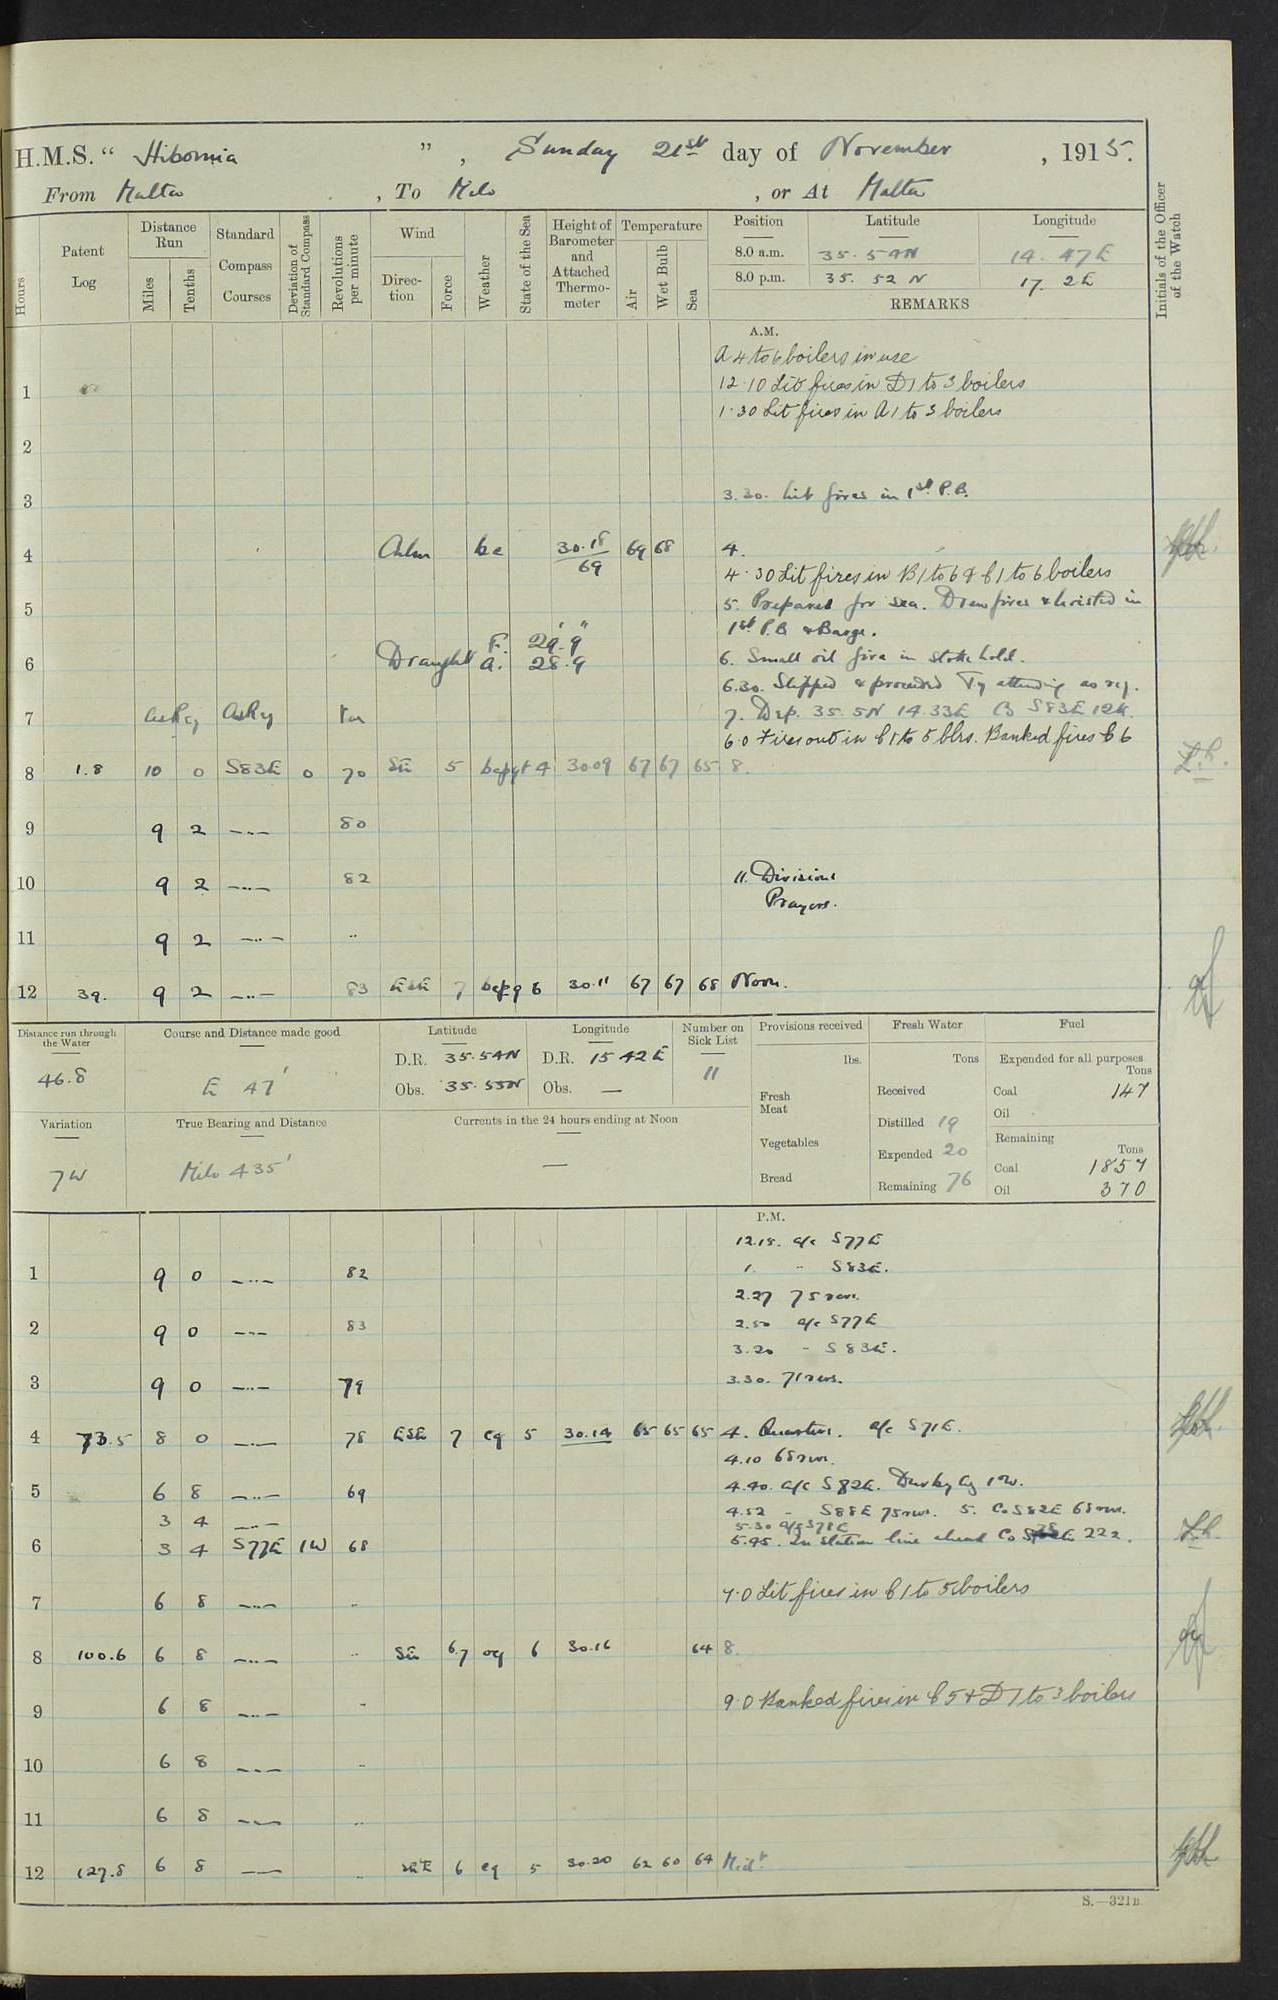 H.M.S. " Hibernia " , Sunday 21st day of November , 1915.
From Malta , To Milo , or At Malta
Hours
Patent Log
Distance Run
Miles
Tenths
Standard Compass Courses
Deviation of Standard Compass
Revolutions per minute
Wind
Direction
Force
Weather
State of the Sea
Height of Barometer and Attached Thermometer
Temperature
Air
Wet Bulb
Sea
Position Latitude Longitude
8.0 a.m. 35. 54N 14. 47E
8.0 p.m. 35. 52 N 17. 2E
REMARKS
Initials of the Officer of the Watch
A.M.
A 4 to 6 boilers in use
1 12.10 Lit fires in D1 to 3 boilers
1.30 Lit fires in A1 to 3 boilers
2
3 3.30. Lit fires in 1st P.B.
4 Calm bc 30.18 69 69 68 4.
4.30 Lit fires in B1 to 6 & C1 to 6 boilers
5 5. Prepared for sea. Drew fires & hoisted in
1st P.B & Barge.
Draught F. 29' 9"
A. 28.9
6 6. Small oil fire in stoke hold.
6.30. Slipped & proceeded Tg attending as req.
7 as Req as Req 7. Dep. 35. 5N 14.33E Co S83E 12K.
6.0 Fires out in C1 to 5 blrs. Banked fires C6
8 1.8 10 0 S83E 0 70 SE 5 4 3009 67 67 65 8.
9 9 2 —..— 80
10 9 2 —..— 82 11. Divisions
Prayers.
11 9 2 —..— ..
12 39. 9 2 —..— 83 ESE 7 6 30.11 67 67 68 Noon.
Distance run through the Water
46.8
Course and Distance made good
E 47'
Latitude
D.R. 35.54N
Obs. 35.55N
Longitude
D.R. 15 42 E
Obs. —
Number on Sick List
11
Provisions received
lbs.
Fresh Meat
Vegetables
Bread
Fresh Water
Tons
Received
Distilled 19
Expended 20
Remaining 76
Fuel
Expended for all purposes
Tons
Coal 147
Oil
Remaining
Tons
Coal 1857
Oil 370
Variation
7W
True Bearing and Distance
Milo 435'
Currents in the 24 hours ending at Noon
—
P.M.
12.18. a/c S77E
1 9 0 —..— 82 1. .. S83E.
2.27 75 revs.
2 9 0 —..— 83 2.50 a/c S77E
3.20 - S83E.
3 9 0 —..— 79 3.30. 71 revs.
4 73.5 8 0 —..— 78 ESE 7 cq 5 30.14 65 65 65 4. Quarters. a/c S71E.
4.10 68 revs.
5 6 8 —..— 69 4.40. a/c S82E.
3 4 —..— 4.52 - S88E 75 revs. 5. Co S82E 68 revs.
5.30 a/c S78E
6 3 4 S77E 1W 68 5.45. In station line ahead Co 222.
7 6 8 —..— .. 7.0 Lit fires in C1 to 5 boilers
8 100.6 6 8 —..— .. SE 6.7 oq 6 30.16 64 8.
9 6 8 —..— .. 9.0 Banked fires in C5 & D1 to 3 boilers
10 6 8 —..— ..
11 6 8 —..— ..
12 127.8 6 8 —..— .. 6 cq 5 30.20 62 60 64 Midt.
S.—321B.